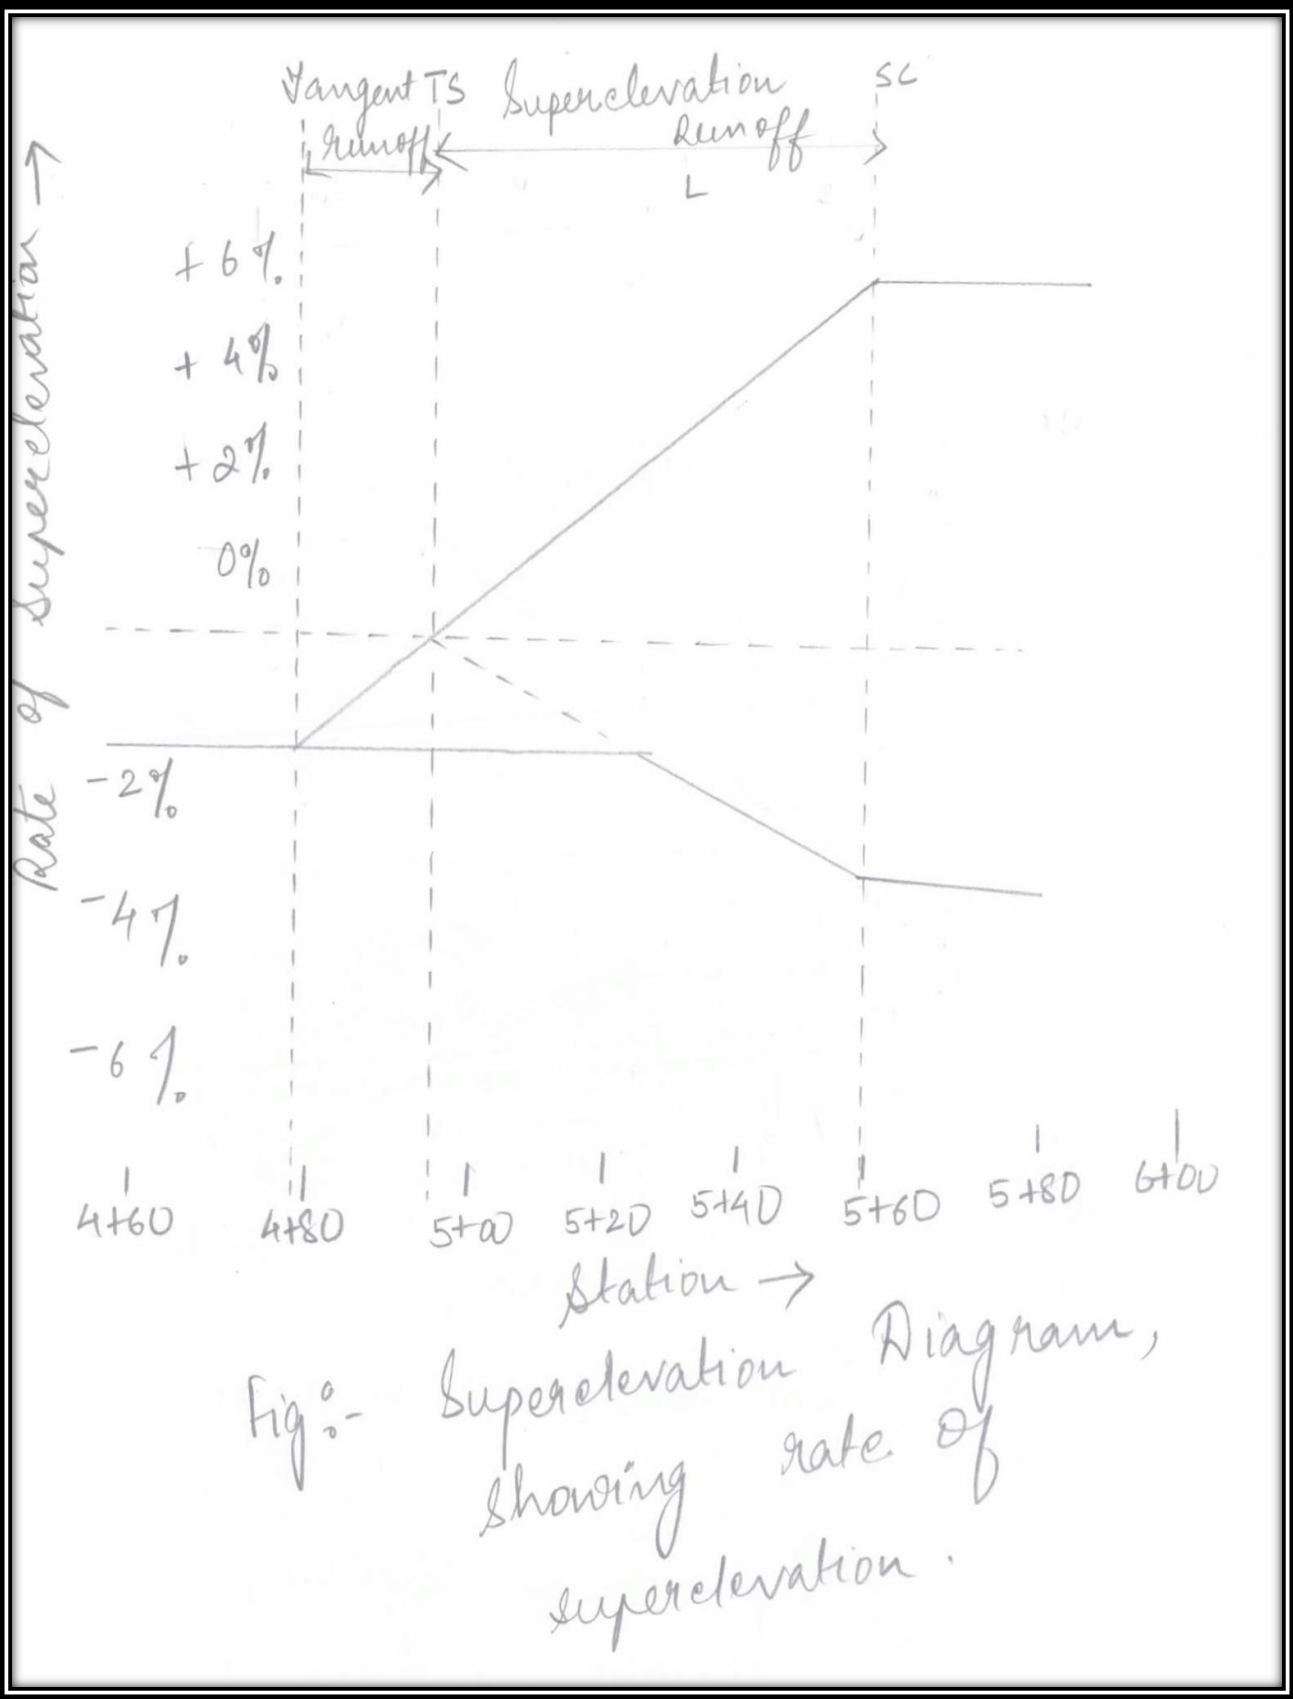 Tangent TS Superelevation SC
runoff Runoff
L
Rate of Superelevation →
+ 6%
+ 4%
+ 2%
0%
-2%
-4%
-6%
4+60 4+80 5+00 5+20 5+40 5+60 5+80 6+00
Station →
Fig:- Superelevation Diagram,
showing rate of
superelevation.